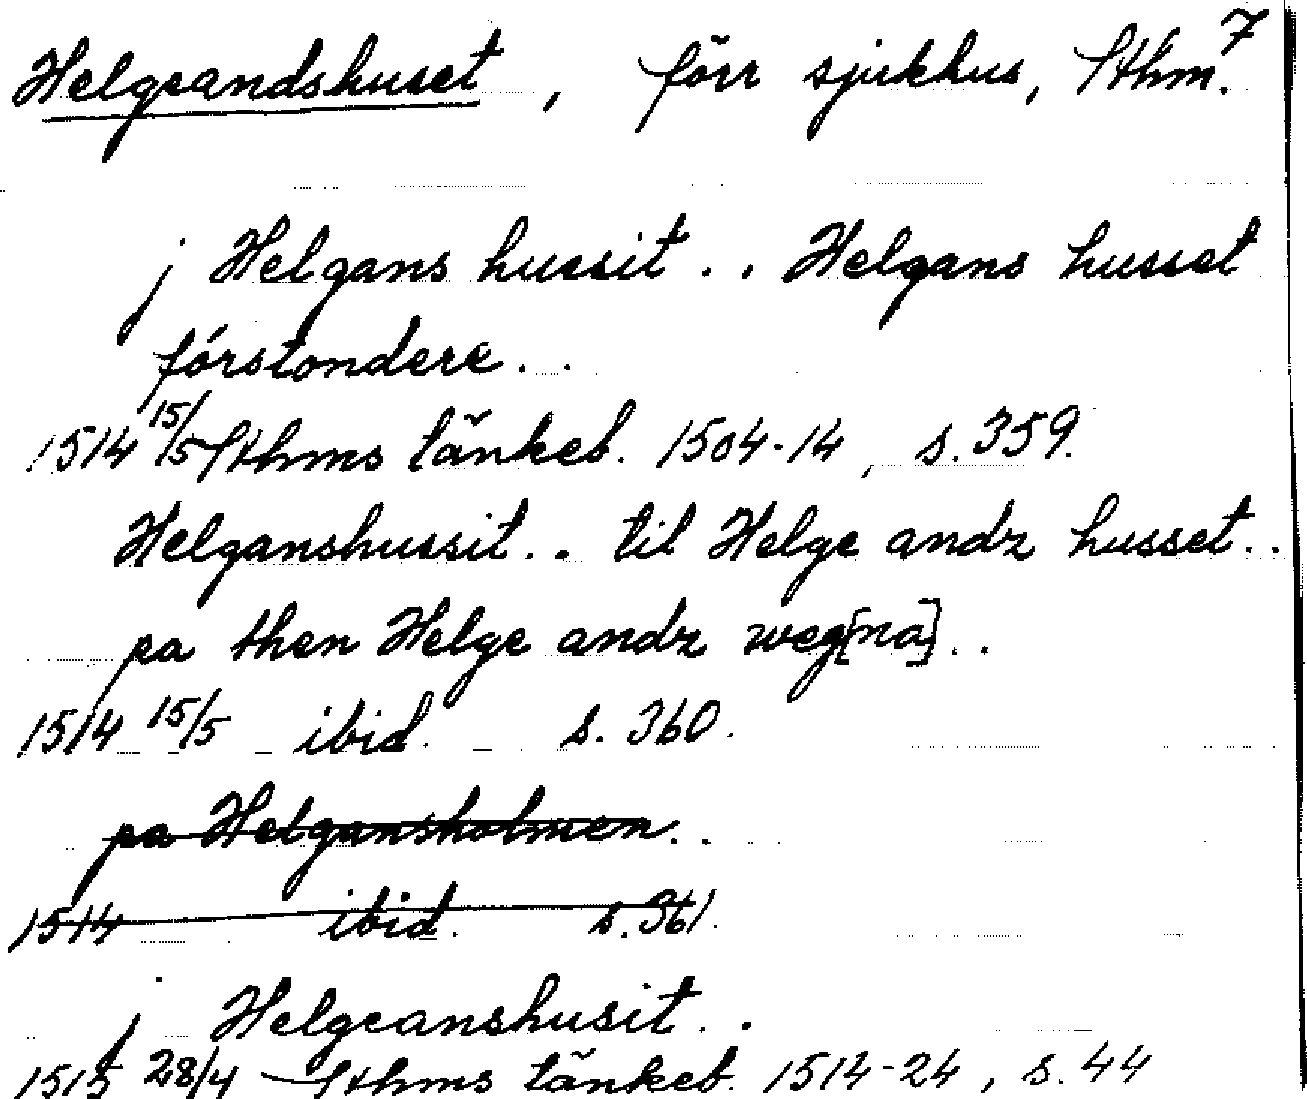 7
Helgeandshuset, förr sjukhus, Sthm.
j Helgans hussit.. Helgans husset
förstondere..
1514 15/5 Sthms tänkeb. 1504-14, s. 359.
Helganshussit.. til Helge andz husset..
pa then Helge andz weg[na]..
1514 15/5 ibid. s. 360.
pa Helgansholmen..
1514 ibid. s. 361.
j Helgeanshusit..
1515 28/4 Sthms tänkeb. 1514-24, s. 44